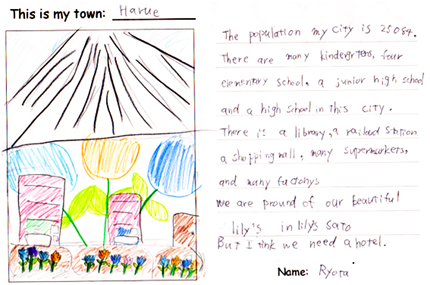 This is my town: Harue
The population my city is 25084.
There are many kindergrtens, four
elementary school, a junior high school
and a high school in this city.
There is a library, a raiload station
a shopping mall, many supermarkets,
and many factorys
we are pround of our beautiful
lily's in lily's Sato
But I tink we need a hotel.
Name: Ryota